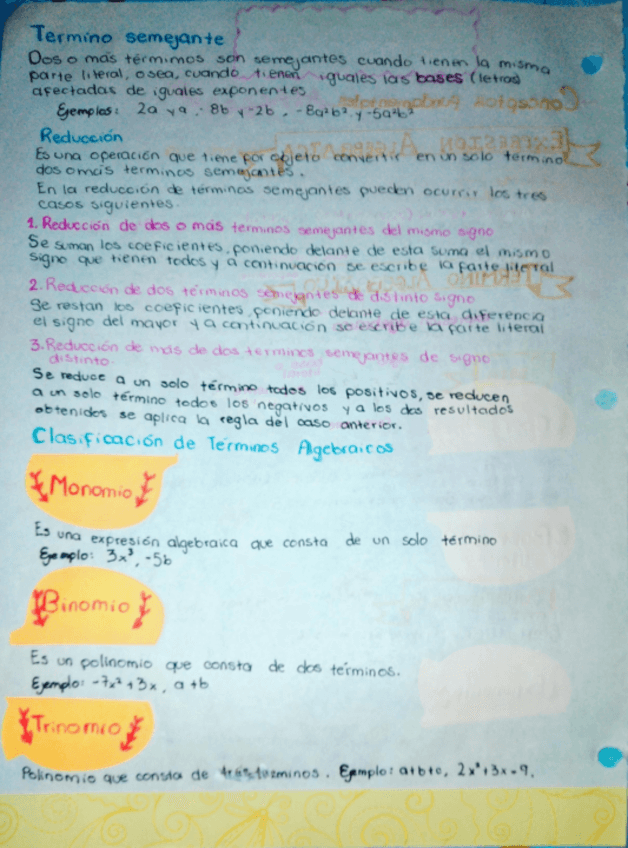 Termino semejante
Dos o más términos son semejantes cuando tienen la misma
parte literal, o sea, cuando tienen iguales las bases (letras)
afectadas de iguales exponentes
Ejemplos: 2a y a, -8b y -2b, -8a²b² y -5a²b²
Reducción
Es una operación que tiene por objeto convertir en un solo término
dos o más terminos semejantes.
En la reducción de términos semejantes pueden ocurrir los tres
casos siguientes.
1. Reducción de dos o más términos semejantes del mismo signo
Se suman los coeficientes, poniendo delante de esta suma el mismo
signo que tienen todos y a continuación se escribe la parte literal
2. Reducción de dos términos semejantes de distinto signo
Se restan los coeficientes, poniendo delante de esta diferencia
el signo del mayor y a continuación se escribe la parte literal
3. Reducción de más de dos terminos semejantes de signo
distinto.
Se reduce a un solo término todos los positivos, se reducen
a un solo término todos los negativos y a los dos resultados
obtenidos se aplica la regla del caso anterior.
Clasificación de Términos Algebraicos
Monomio
Es una expresión algebraica que consta de un solo término
Ejemplo: 3x³, -5b
Binomio
Es un polinomio que consta de dos términos.
Ejemplo: -7x² + 3x, a+b
Trinomio
Polinomio que consta de tres terminos. Ejemplo: a+b+c, 2x²+3x-9.